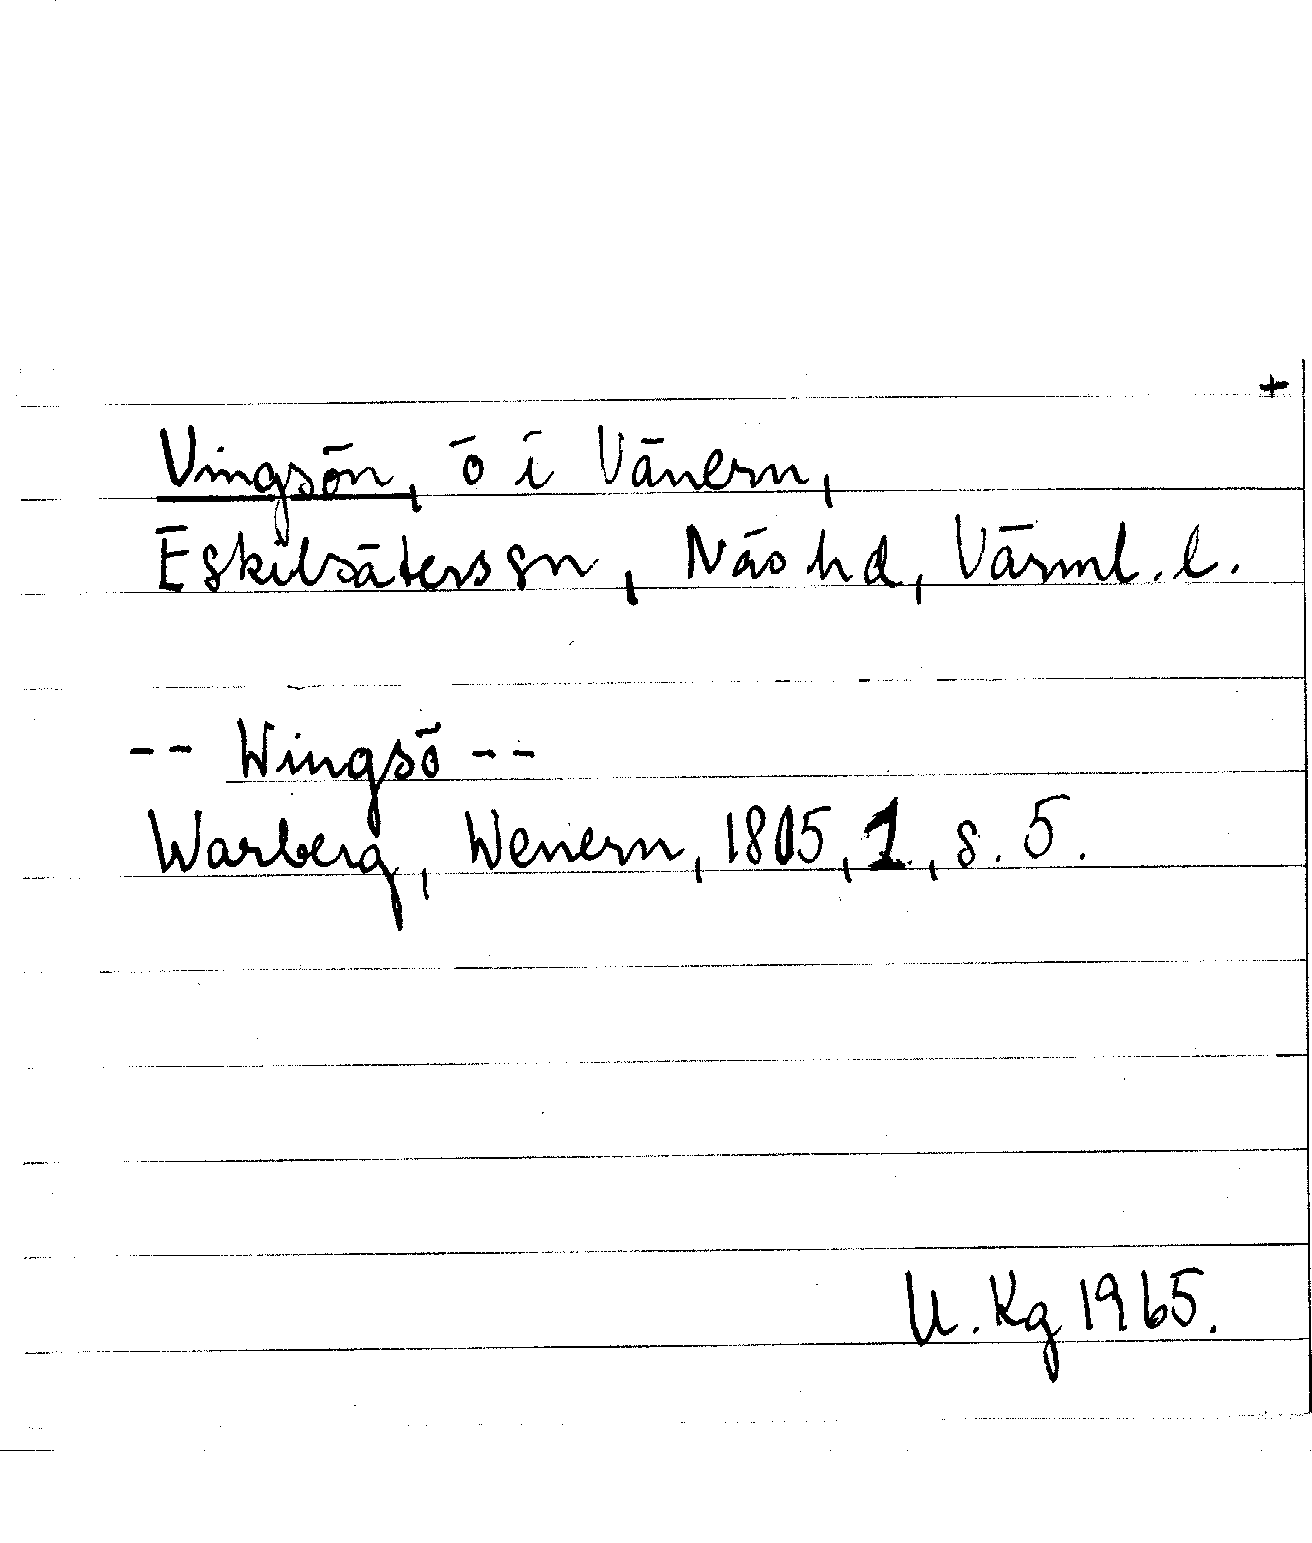 +
Vingsön, ö i Vänern,
Eskilsäterssn, Näs hd, Värml. l.
-- Wingsö --
Warberg, Wenern, 1805, 1, s. 5.
U. Kg 1965.